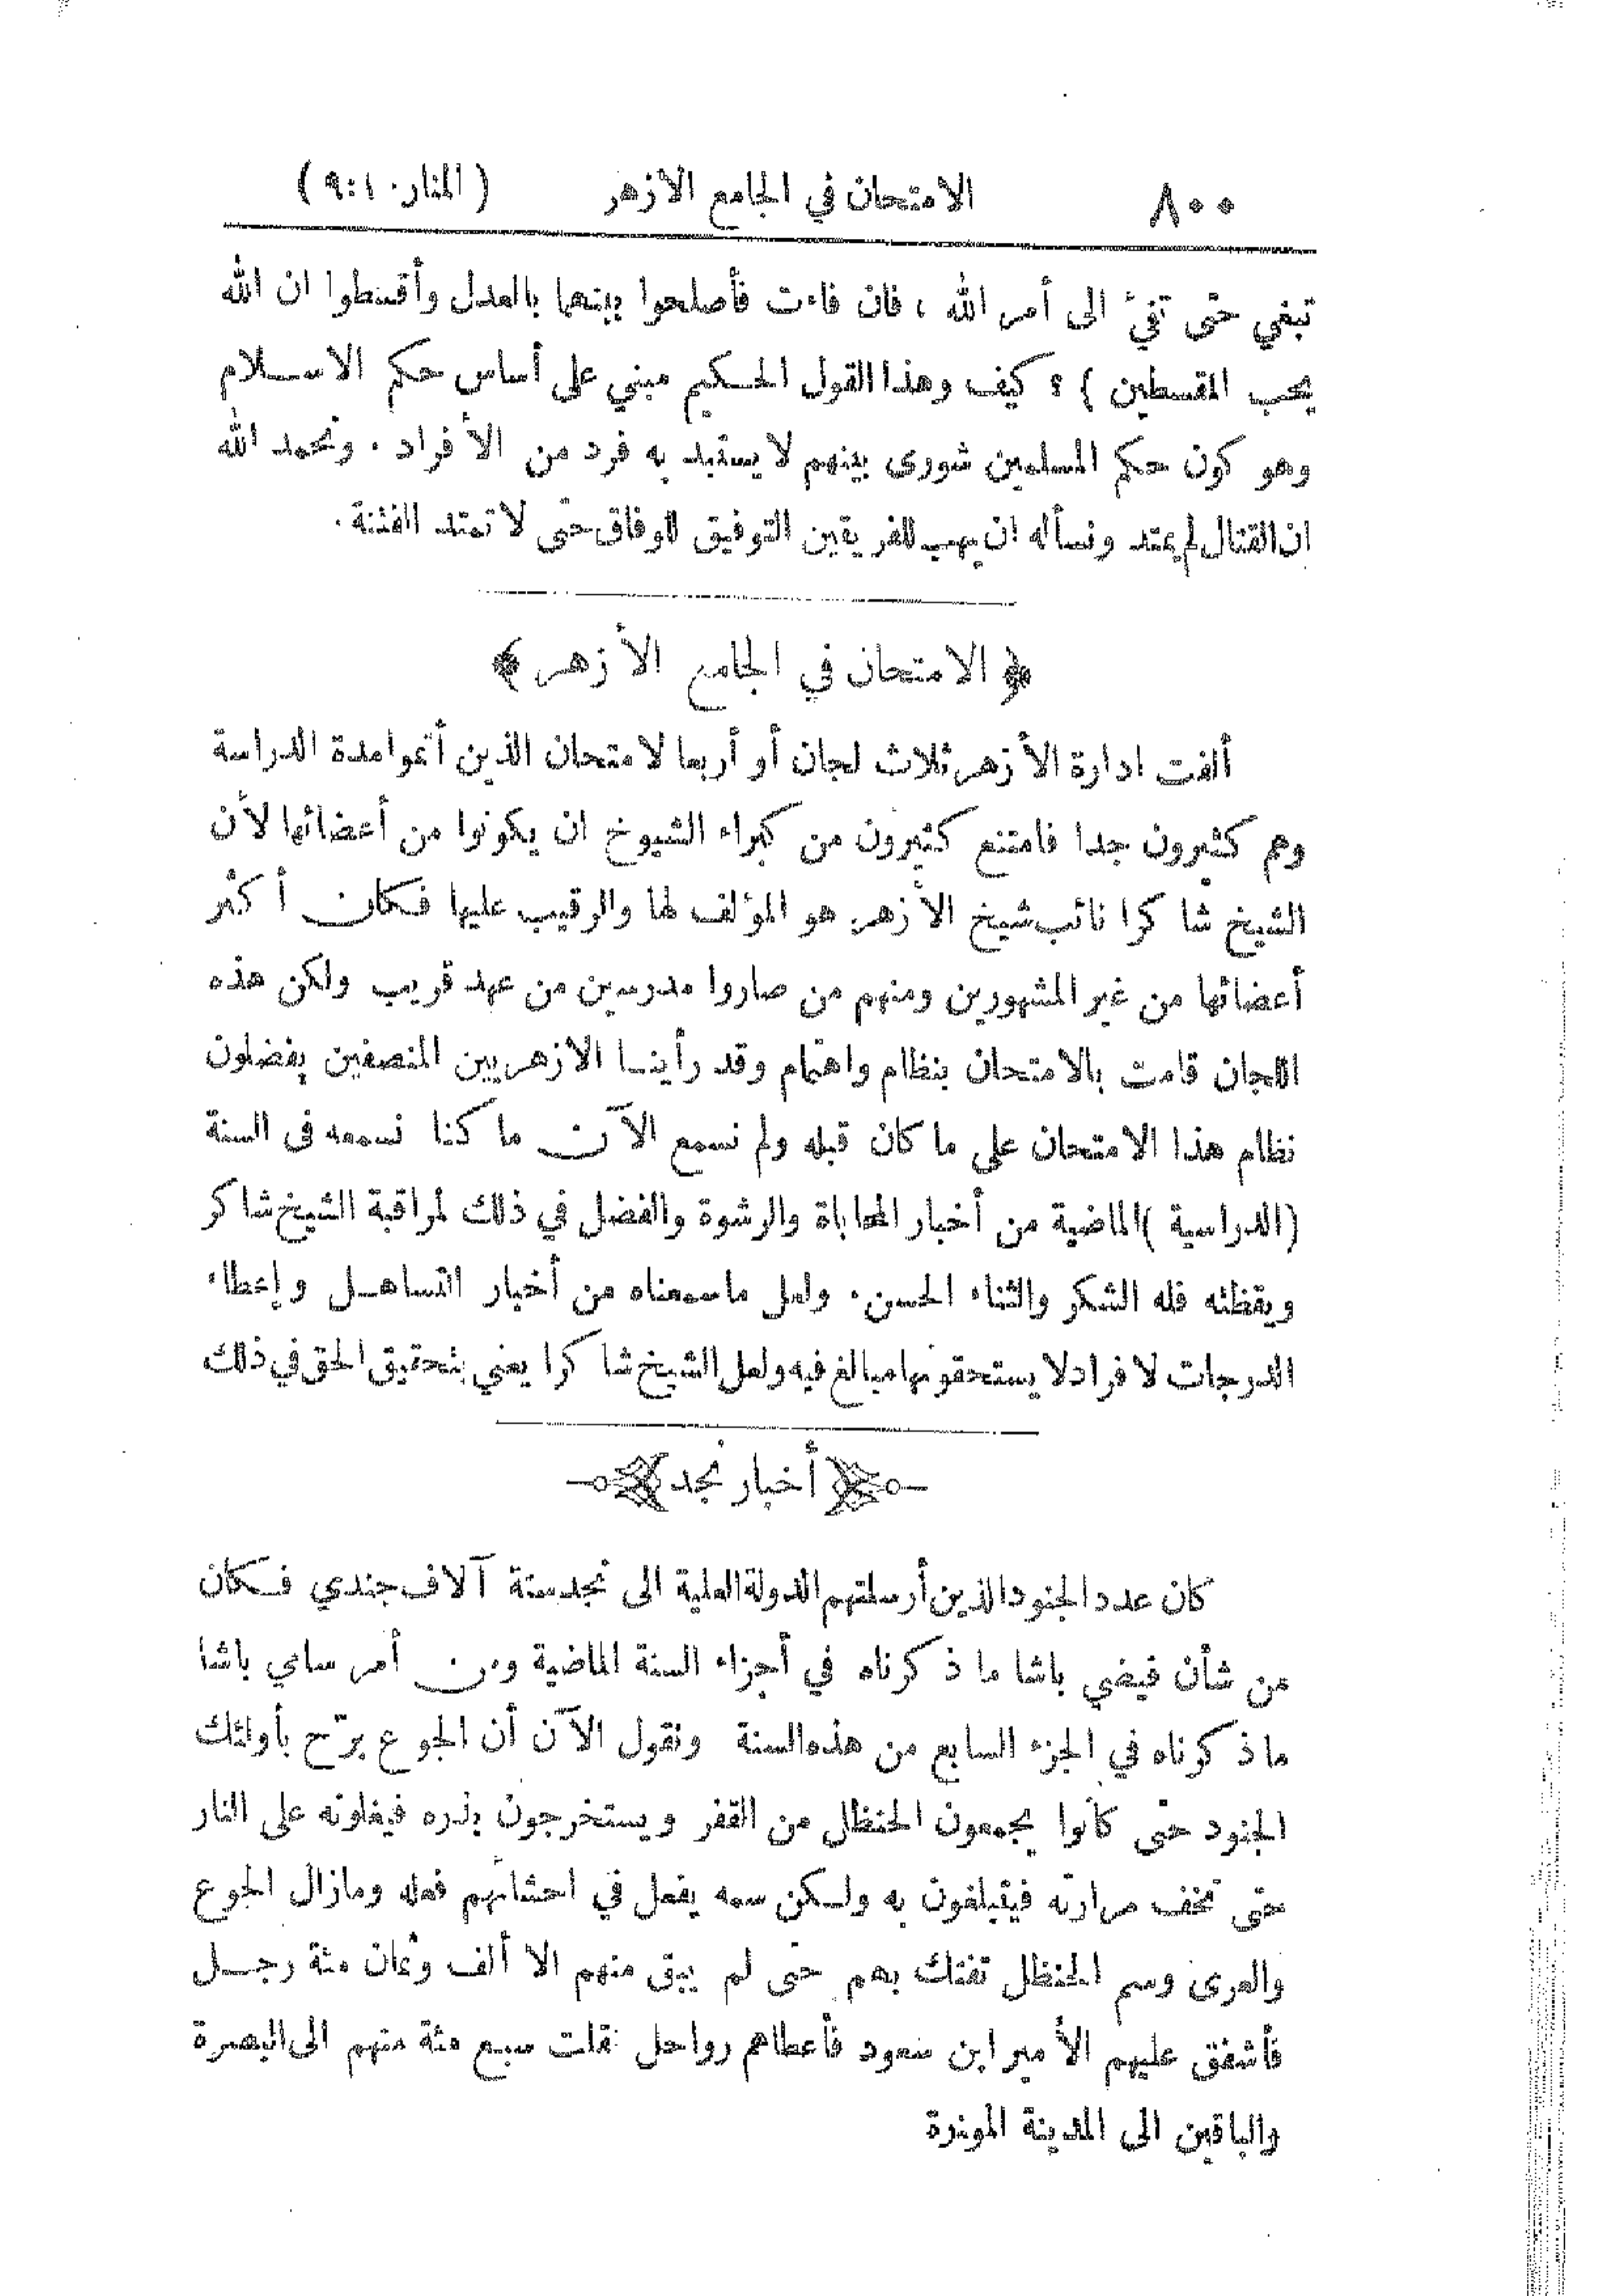 ٨٠٠ الامتحان في الجامع الازهر (المنار ١٠:٩)
تبغي حتى تفيّ الى أمر الله ، فان فاءت فأصلحوا بينهما بالعدل وأقسطوا ان الله
يحب المقسطين ) ؟ كيف وهذا القول الحكيم مبني على أساس حكم الاسلام
وهو كون حكم المسلمين شورى بينهم لا يستبد به فرد من الأفراد . ونحمد الله
ان القتال لم يمتد ونسأله ان يهب للفريقين التوفيق للوفاق حتى لا تمتد الفتنة .
﴿ الامتحان في الجامع الأزهر ﴾
ألفت ادارة الأزهر ثلاث لجان أو أربعا لامتحان الذين أتموا مدة الدراسة
وهم كثيرون جدا فامتنع كثيرون من كبراء الشيوخ ان يكونوا من أعضائها لأن
الشيخ شاكرا نائب شيخ الأزهر هو المؤلف لها والرقيب عليها فكان أكثر
أعضائها من غير المشهورين ومنهم من صاروا مدرسين من عهد قريب ولكن هذه
اللجان قامت بالامتحان بنظام واهتمام وقد رأينا الازهريين المنصفين يفضلون
نظام هذا الامتحان على ما كان قبله ولم نسمع الآن ما كنا نسمعه في السنة
(الدراسية) الماضية من أخبار المحاباة والرشوة والفضل في ذلك لمراقبة الشيخ شاكر
ويقظته فله الشكر والثناء الحسن . ولعل ما سمعناه من أخبار التساهل وإعطاء
الدرجات لافراد لا يستحقونها مبالغ فيه ولعل الشيخ شاكرا يعني بتحقيق الحق في ذلك
أخبار نجد
كان عدد الجنود الذين أرسلتهم الدولة العلية الى نجد ستة آلاف جندي فكان
من شأن فيضي باشا ما ذكرناه في أجزاء السنة الماضية ومن أمر سامي باشا
ما ذكرناه في الجزء السابع من هذه السنة ونقول الآن أن الجوع برّح بأولئك
الجنود حتى كانوا يجمعون الحنظل من القفر ويستخرجون بذره فيغلونه على النار
حتى تخف مرارته فيتبلغون به ولكن سمه يفعل في احشائهم فعله ومازال الجوع
والعرى وسم الحنظل تفتك بهم حتى لم يبق منهم الا ألف وثمان مئة رجل
فأشفق عليهم الأمير ابن سعود فأعطاهم رواحل نقلت سبع مئة منهم الى البصرة
والباقين الى المدينة المونرة